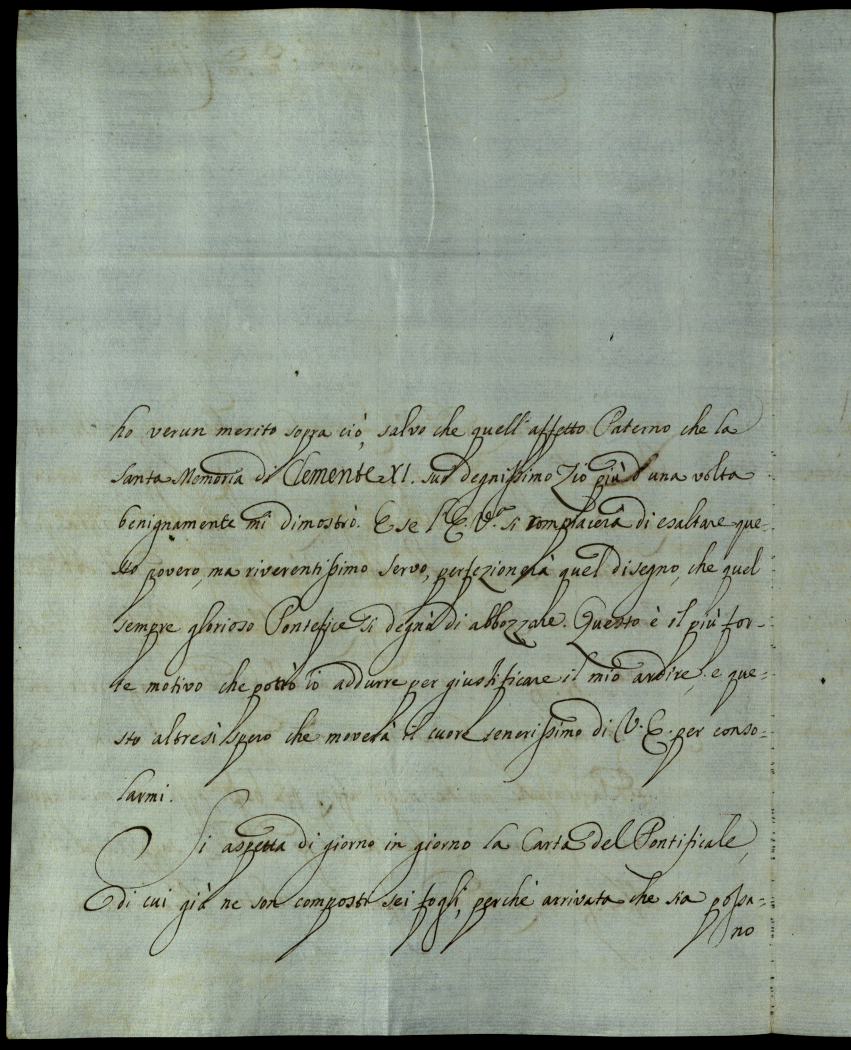 ho verun merito sopra ciò, salvo che quell'affetto Paterno che la
Santa Memoria di Clemente XI. suo degnissimo Zio più d'una volta
benignamente mi dimostrò. E se l'E. V.ra si compiacerà di esaltare que-
sto povero, ma riverentissimo servo, perfezionerà quel disegno, che quel
sempre glorioso Pontefice si degnò di abbozzare. Questo è il più for-
te motivo che potrò io addurre per giustificare il mio ardire, e que-
sto altresì spero che moverà il cuore tenerissimo di V. E. per conso-
larmi.
Si aspetta di giorno in giorno la Carta del Pontificale,
di cui già ne son composti sei fogli, perché arrivata che sia possa-
no